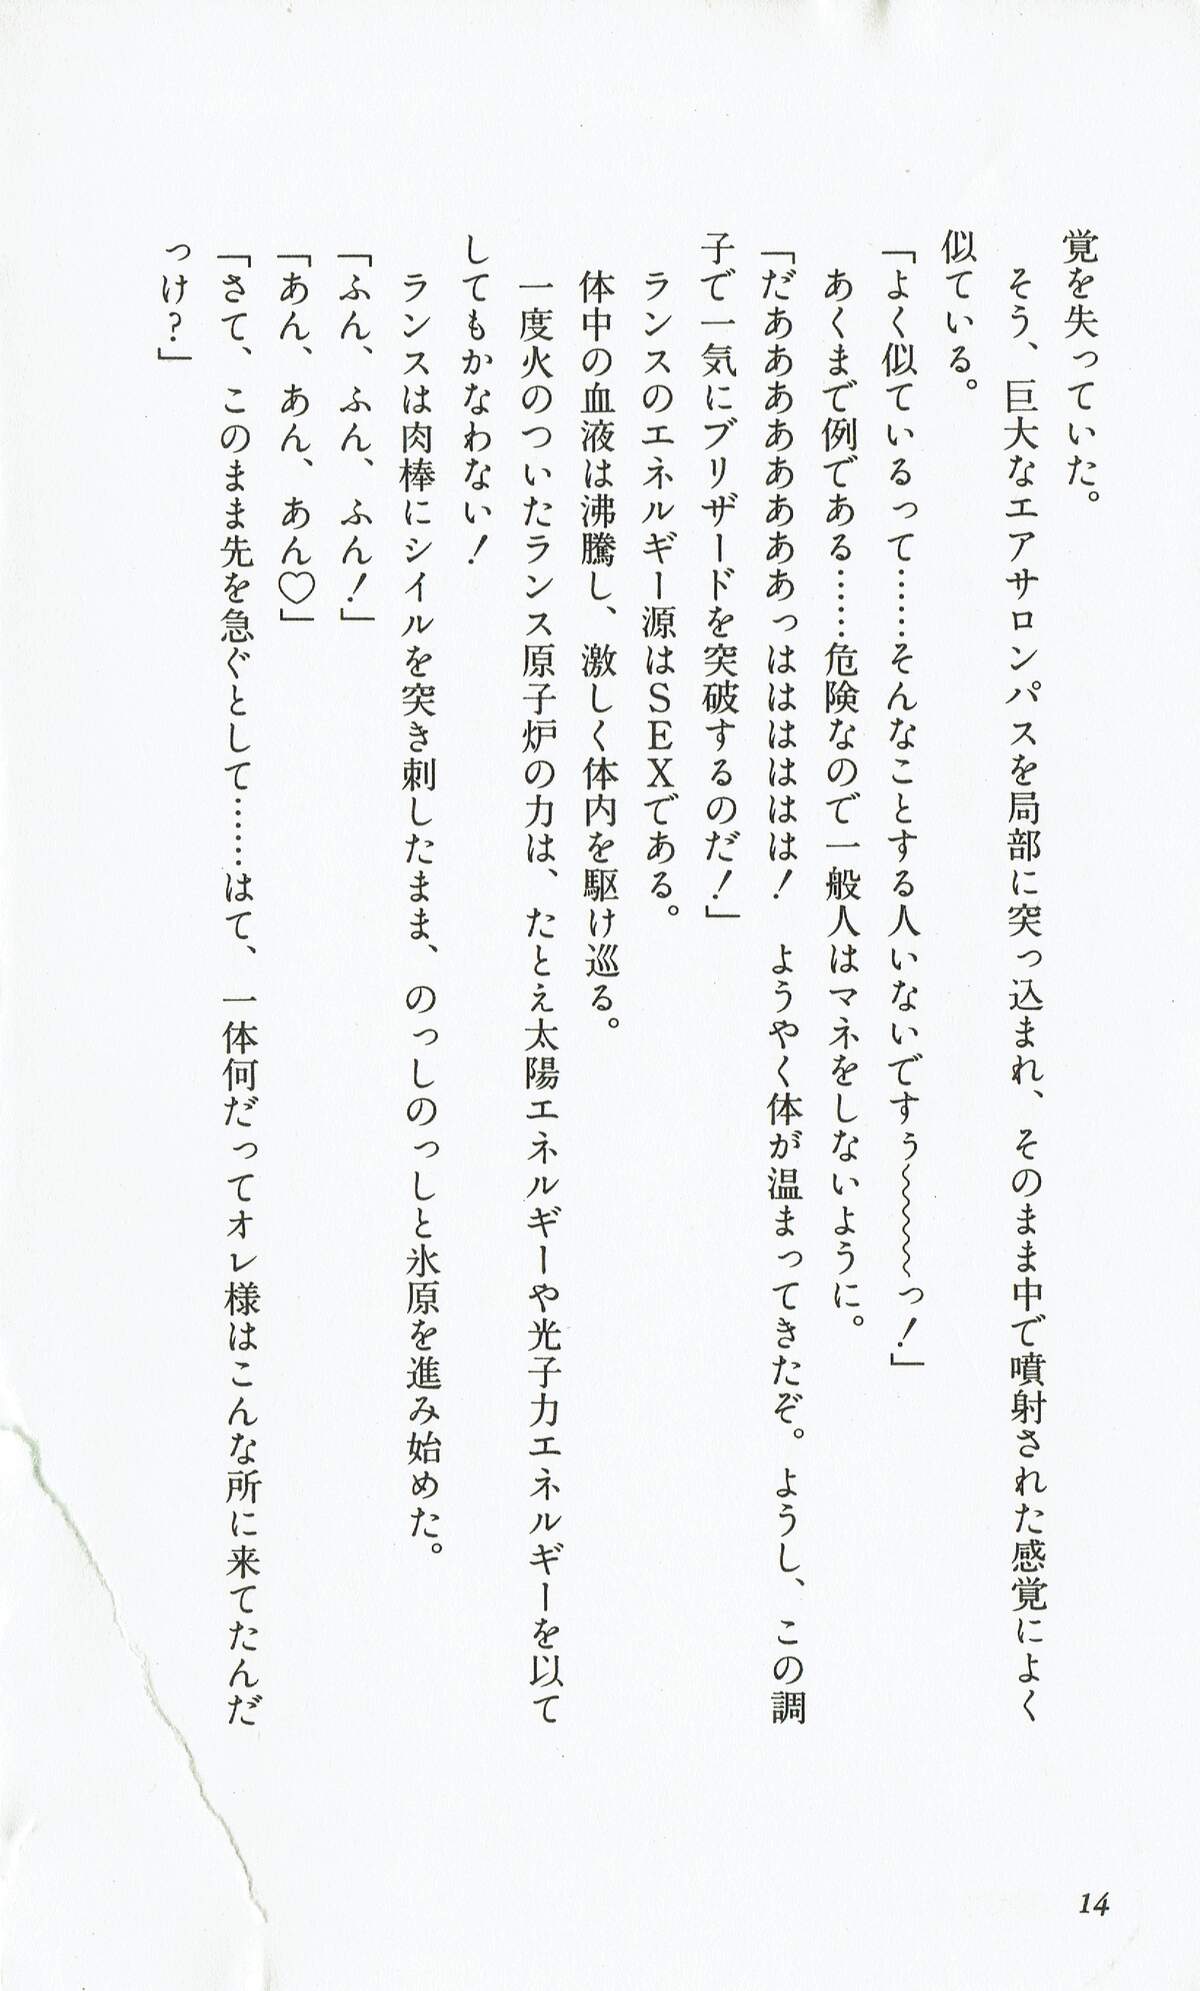 覚を失っていた。
そう、巨大なエアサロンパスを局部に突っ込まれ、そのまま中で噴射された感覚によく
似ている。
「よく似ているって……そんなことする人いないですぅ～～～～っ！」
あくまで例である……危険なので一般人はマネをしないように。
「だあああああああっはははははは！　ようやく体が温まってきたぞ。ようし、この調
子で一気にブリザードを突破するのだ！」
ランスのエネルギー源はＳＥＸである。
体中の血液は沸騰し、激しく体内を駆け巡る。
一度火のついたランス原子炉の力は、たとえ太陽エネルギーや光子力エネルギーを以て
してもかなわない！
ランスは肉棒にシイルを突き刺したまま、のっしのっしと氷原を進み始めた。
「ふん、ふん、ふん！」
「あん、あん、あん♡」
「さて、このまま先を急ぐとして……はて、一体何だってオレ様はこんな所に来てたんだ
っけ？」
14